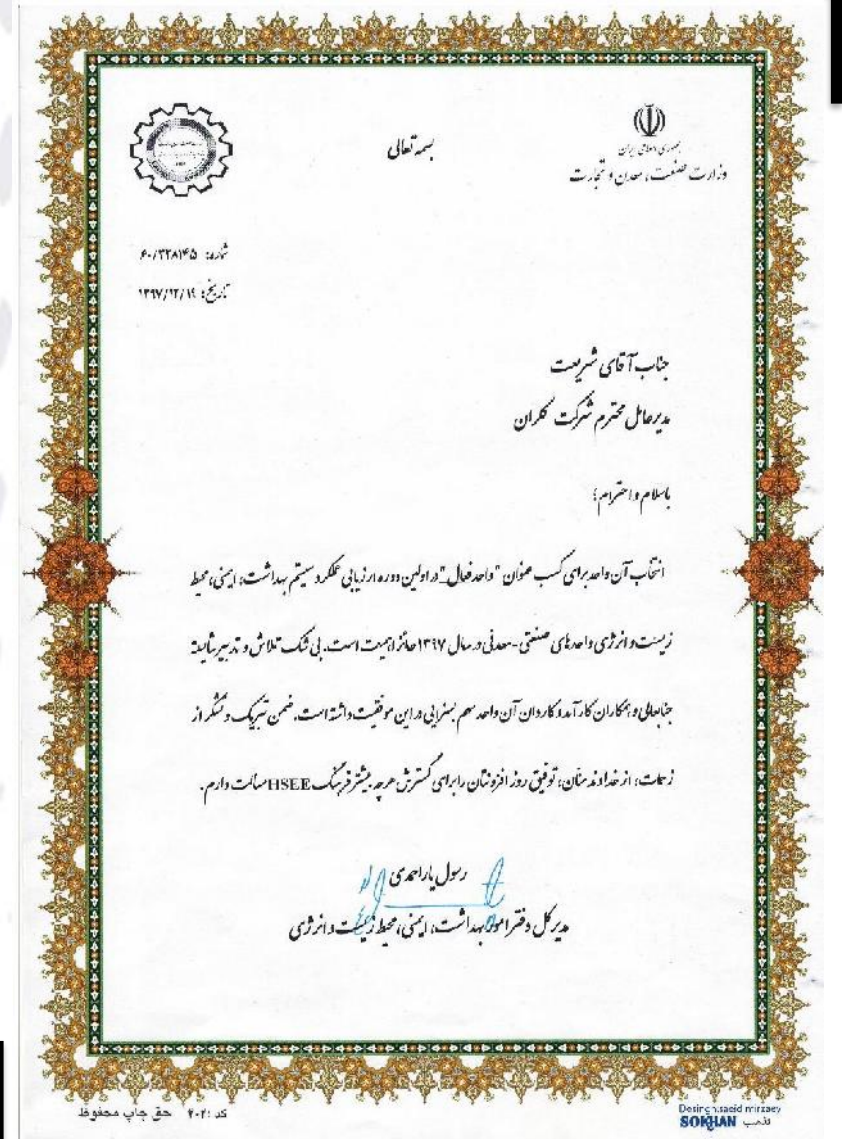 بسمه تعالی
جمهوری اسلامی ایران
وزارت صنعت، معدن و تجارت
شماره: ۶۰/۳۲۸۱۴۵
تاریخ: ۱۳۹۷/۱۲/۱۹
جناب آقای شریعت
مدیرعامل محترم شرکت گلران
باسلام و احترام؛
انتخاب آن واحد برای کسب عنوان "واحد فعال" در اولین دوره ارزیابی عملکرد سیستم بهداشت، ایمنی، محیط
زیست و انرژی واحدهای صنعتی-معدنی در سال ۱۳۹۷ حائز اهمیت است. بی شک تلاش و تدبیر شایسته
جنابعالی و همکاران کارآمد و کاردان آن واحد سهم بسزایی در این موفقیت داشته است. ضمن تبریک و تشکر از
زحمات، از خداوند منان، توفیق روز افزونتان را برای گسترش هرچه بیشتر فرهنگ HSEE مسالت دارم.
رسول یاراحمدی
مدیرکل دفتر امور بهداشت، ایمنی، محیط زیست و انرژی
کد :۴۰۲ حق چاپ محفوظ
Desingh.saeid mirzaey
SOKHAN تذهیب